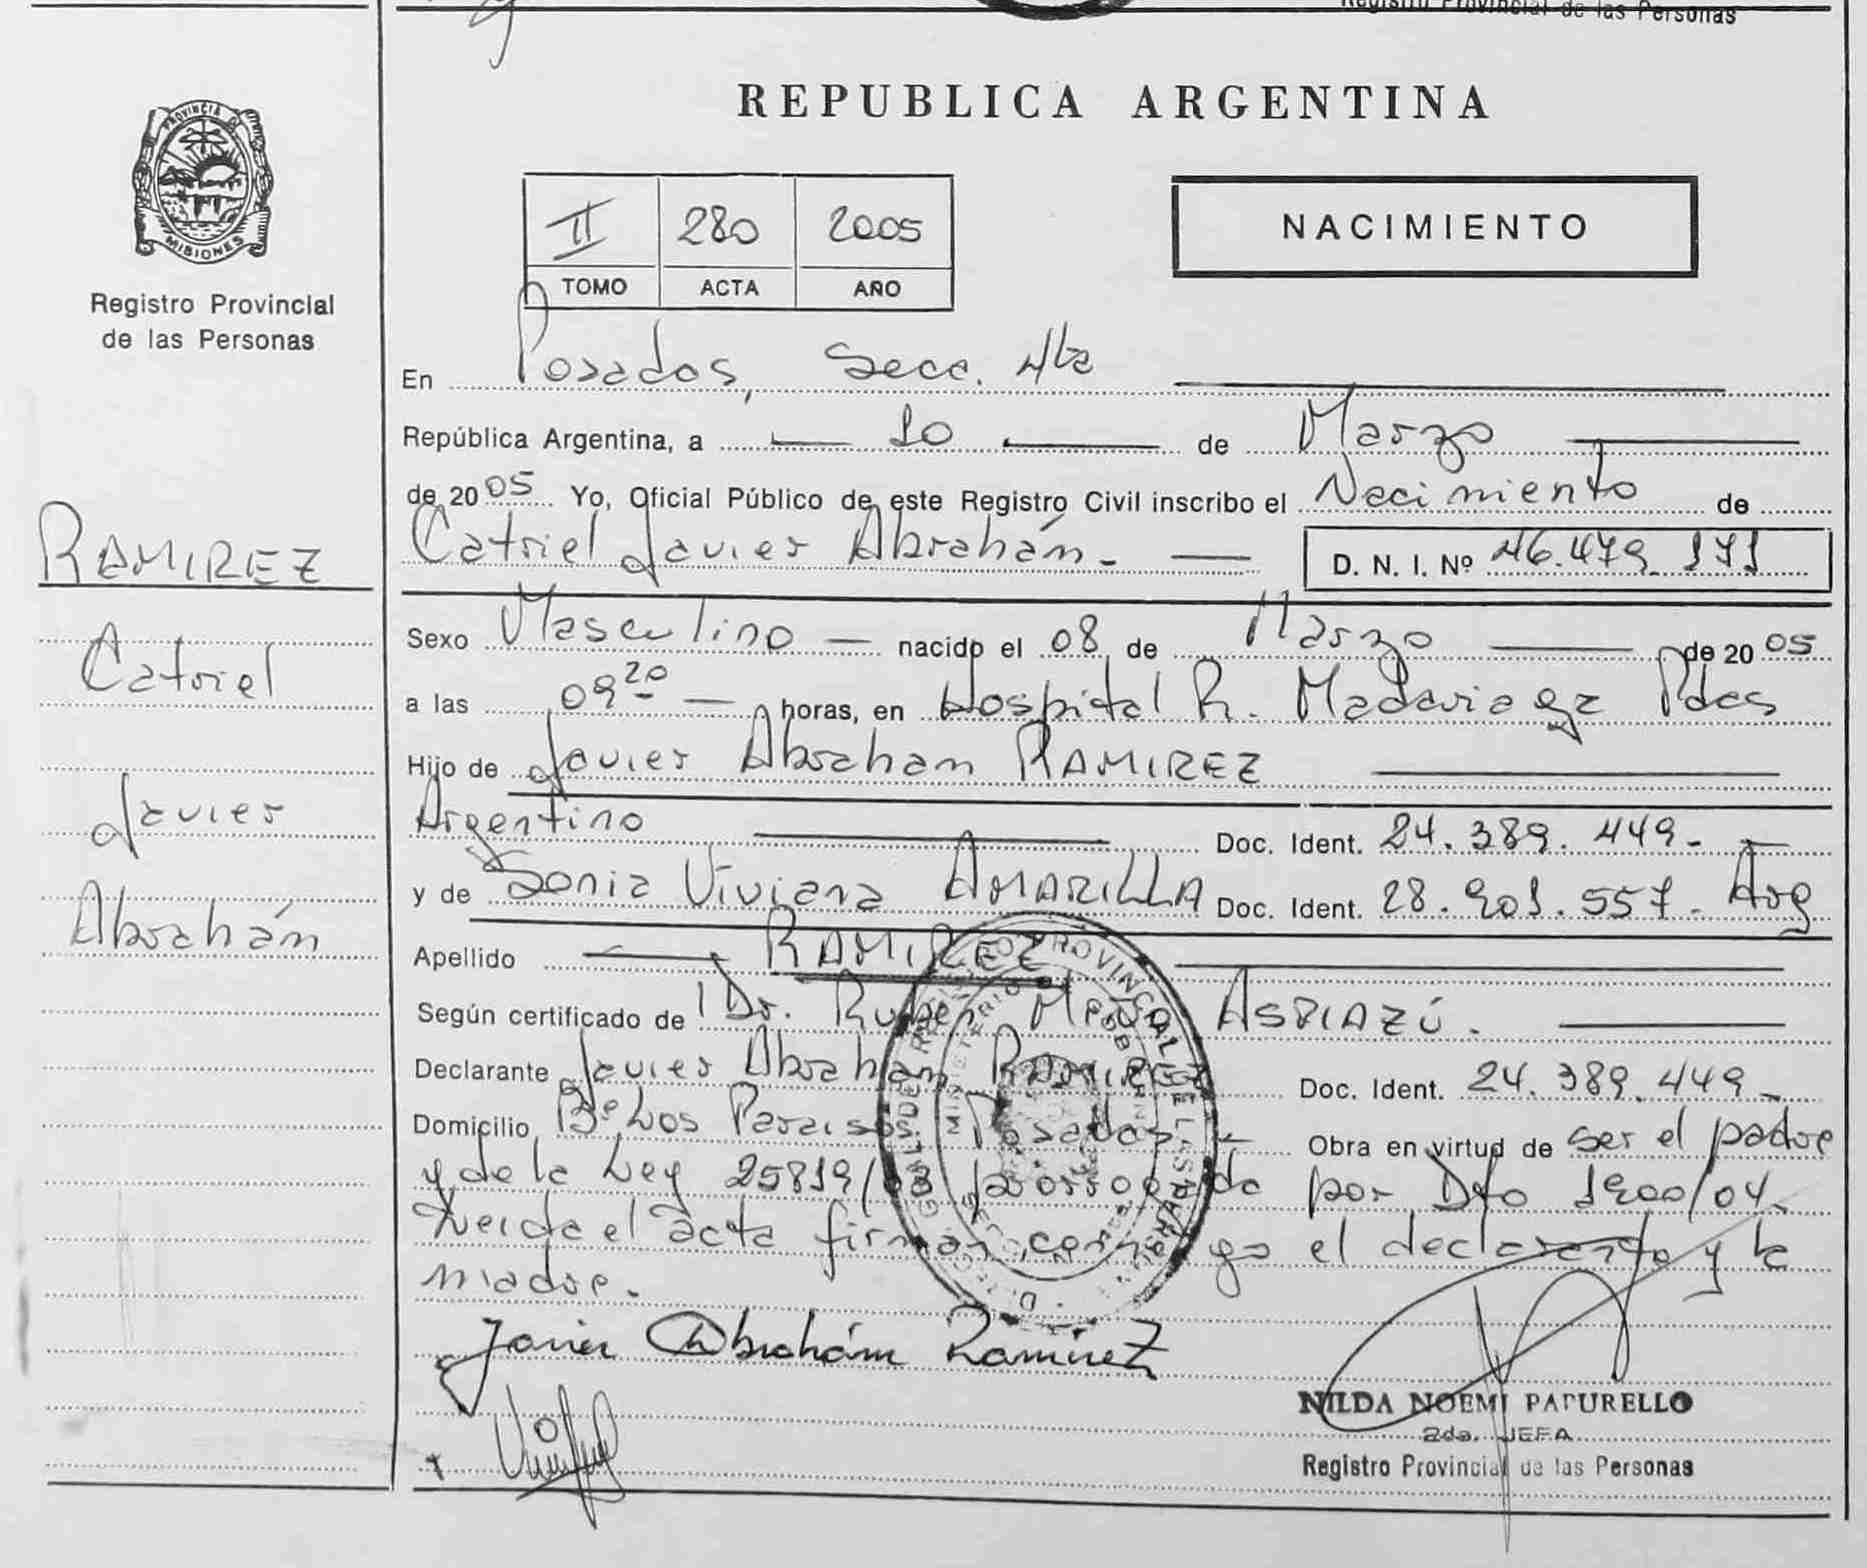 Registro Provincial de las Personas
PROVINCIA DE
MISIONES
Registro Provincial
de las Personas
RAMIREZ
Catriel
Javier
Abrahán
REPUBLICA ARGENTINA
II 280 2005
TOMO ACTA AÑO
NACIMIENTO
En Posadas, Secc. 4ta
República Argentina, a 10 de Marzo
de 2005 Yo, Oficial Público de este Registro Civil inscribo el Nacimiento de
Catriel Javier Abrahán.- D. N. I. Nº 46.479.171
Sexo Masculino nacido el 08 de Marzo de 2005
a las 09 20 horas, en Hospital R. Madariaga Pdas
Hijo de Javier Abraham RAMIREZ
Argentino Doc. Ident. 24.389.449.-
y de Sonia Viviana AMARILLA Doc. Ident. 28.901.557. Arg
Apellido RAMIREZ
Según certificado de Dr. Ruben ASPIAZÚ.
Declarante Javier Abraham RAMIREZ Doc. Ident. 24.389.449.-
Domicilio Bº Los Paraisos Posadas.- Obra en virtud de ser el padre
y de la Ley 25819/03 prorrogada por Dto 1900/04.
Leida el acta firman conmigo el declarante y la
madre.
Javier Abrahám Ramirez
NILDA NOEMI PATURELLO
2da. JEFA
Registro Provincial de las Personas